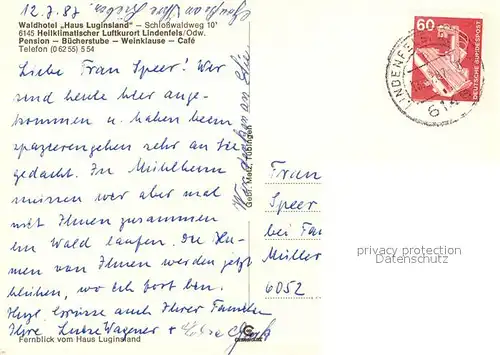 12.7.87
Waldhotel „Haus Luginsland" – Schloßwaldweg 10
6145 Heilklimatischer Luftkurort Lindenfels/Odw.
Pension – Bücherstube – Weinklause – Café
Telefon (0 62 55) 5 54
Liebe Frau Speer! Wir
sind heute hier ange-
kommen u. haben beim
spazierengehen sehr an Sie
gedacht. In Mühlheim
müssen wir aber mal
mit Ihnen zusammen
im Wald laufen. Die Blu-
men von Ihnen werden jetzt
blühen, wo ich fort bin.
Herzl. Grüsse auch Ihrer Familie
Ihre Luise Wagner +
Fernblick vom Haus Luginsland
Wir denken an Sie
Gebr. Metz, Tübingen
60
DEUTSCHE BUNDESPOST
LINDENFE
614
Frau
Speer
bei Fa
Müller
6052
privacy protection
Datenschutz